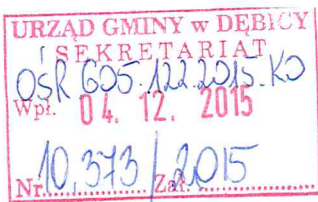 URZĄD GMINY w DĘBICY
SEKRETARIAT
OŚR 605.122.2015.KO
Wpł. 04. 12. 2015
Nr. 10.373/2015 Zał.